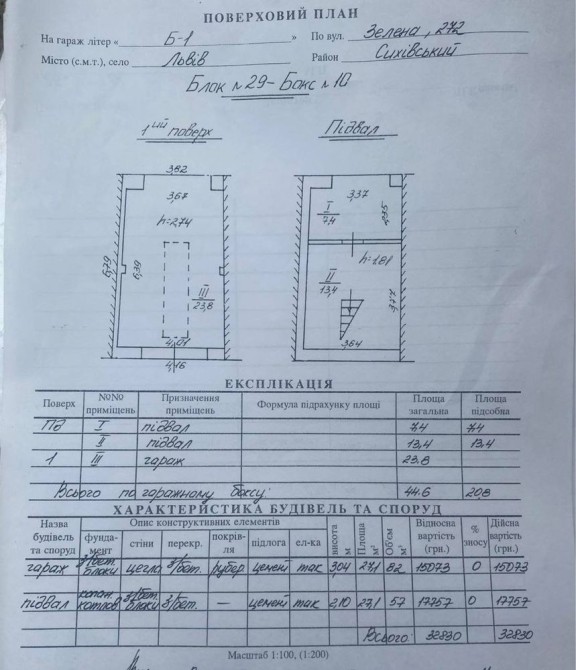 ПОВЕРХОВИЙ ПЛАН
На гараж літер « Б-1 » По вул. Зелена, 272
Місто (с.м.т.), село Львів Район Сихівський
Блок №29 - Бокс №10
1ий поверх Підвал
3,82
3,67
h=2,74
6,79
6,39
III
23,8
4,01
4,16
3,37
I
7,4
2,35
h=1,81
II
13,4
3,77
3,64
ЕКСПЛІКАЦІЯ
Поверх №№ приміщень Призначення приміщень Формула підрахунку площі Площа загальна Площа підсобна
Пд I підвал 7,4 7,4
II підвал 13,4 13,4
1 III гараж 23,8
Всього по гаражному боксу: 44,6 20,8
ХАРАКТЕРИСТИКА БУДІВЕЛЬ ТА СПОРУД
Назва будівель та споруд Опис конструктивних елементів висота м Площа м² Об'єм м³ Відносна вартість (грн.) % зносу Дійсна вартість (грн.)
фунда-мент стіни перекр. покрів-ля підлога ел-ка
гараж з/бет. блоки цегла з/бет. рубер. цемент так 3,04 27,1 82 15073 0 15073
підвал копан. котлов. з/бет. блоки з/бет. — цемент так 2,10 27,1 57 17757 0 17757
Всього: 32830 32830
Масштаб 1:100, (1:200)